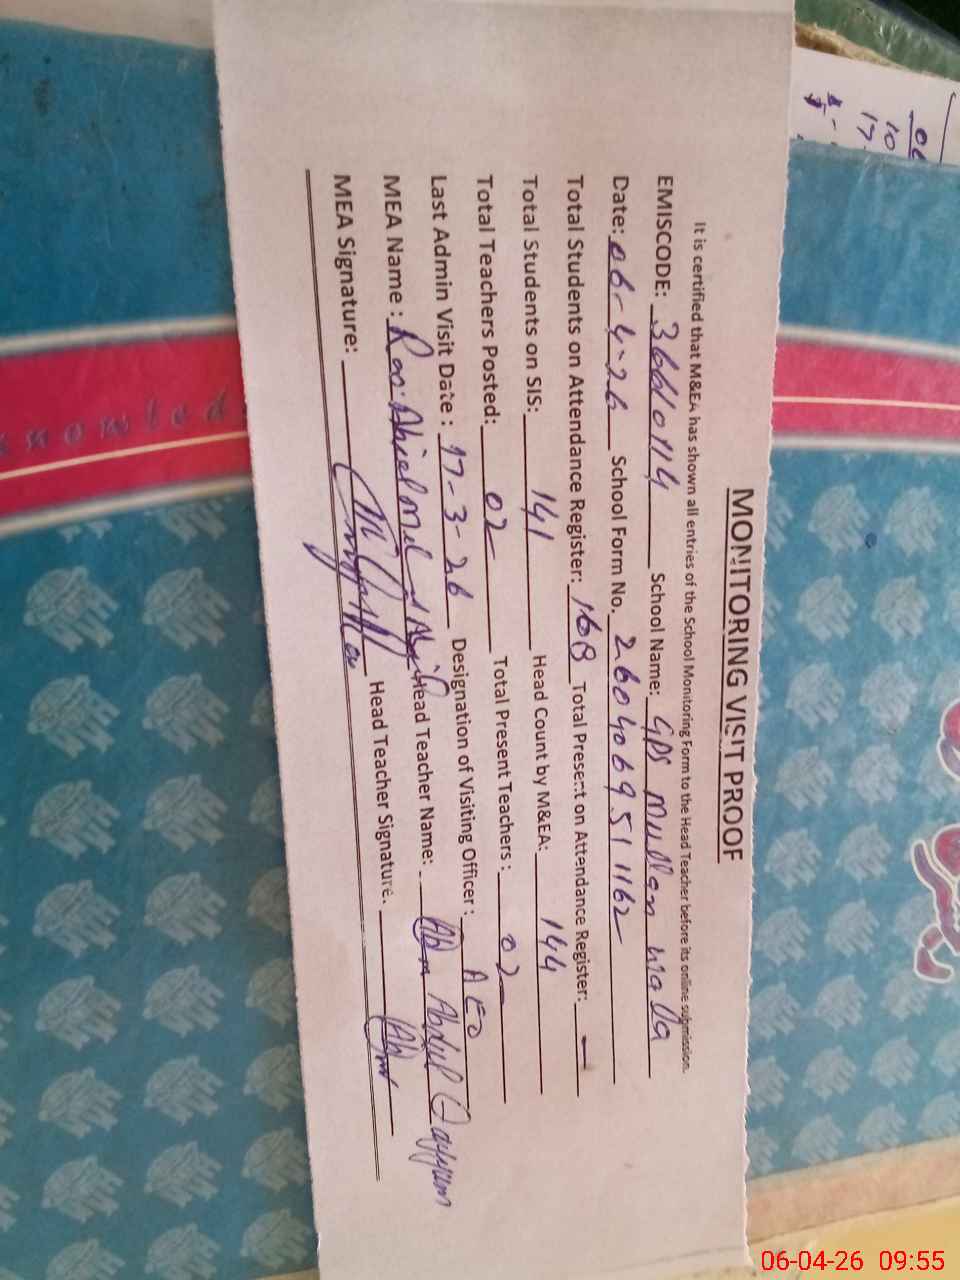 MONITORING VISIT PROOF
It is certified that M&EA has shown all entries of the School Monitoring Form to the Head Teacher before its online submission.
EMISCODE: 36610114 School Name: GPS Mullan Wala
Date: 06-4-26 School Form No. 26040695 11162
Total Students on Attendance Register: 168 Total Present on Attendance Register: —
Total Students on SIS: 141 Head Count by M&EA: 144
Total Teachers Posted: 02 Total Present Teachers: 02
Last Admin Visit Date: 17-3-26 Designation of Visiting Officer: AEO
MEA Name: Rao Head Teacher Name: Abdul Qayyum
MEA Signature: Head Teacher Signature.
06-04-26 09:55